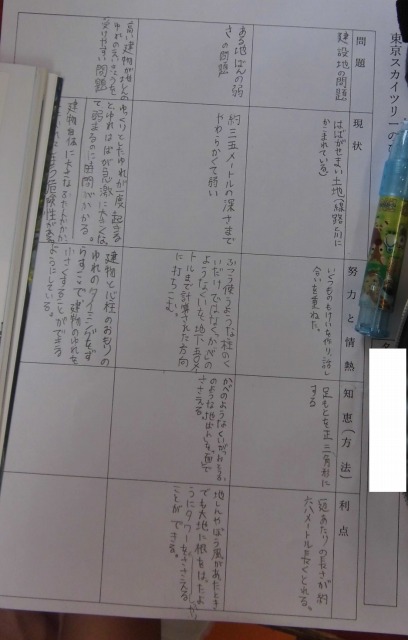 東京スカイツリーの
問題
現状
努力と情熱
知恵（方法）
利点
建設地の問題
はばがせまい土地（線路と川に
かこまれている）
いくつものもけいを作り、話し
合いを重ねた。
足もとを正三角形に
する
一辺あたりの長さが約
六八メートルと短くとれる。
ある地ばんの弱
さの問題
約三五メートルの深さまで
やわらかくて弱い
ふつう使うような柱のく
いだけではなく、かべの
ようなくいを地下五〇メー
トルまで計算された方向
に打ちこむ。
かべのようなくいが
のような地ばんを
ささえる。
地しんやぼう風があたったとき
でも大地に根をはったよ
うにタワーをささえる
ことができる。
高い建物が地しんの
ゆれのえいきょうを
受けやすい問題
ゆっくりとしたゆれが一度起きる
とゆれはばが急激に大きくな
弱まるのに時間がかかる。
建物自体に大きなふたんがか
危険性がある
建物と心柱のおもりの
ゆれのタイミングをず
らすことで建物のゆれを
小さくすることができる
ようにしている。